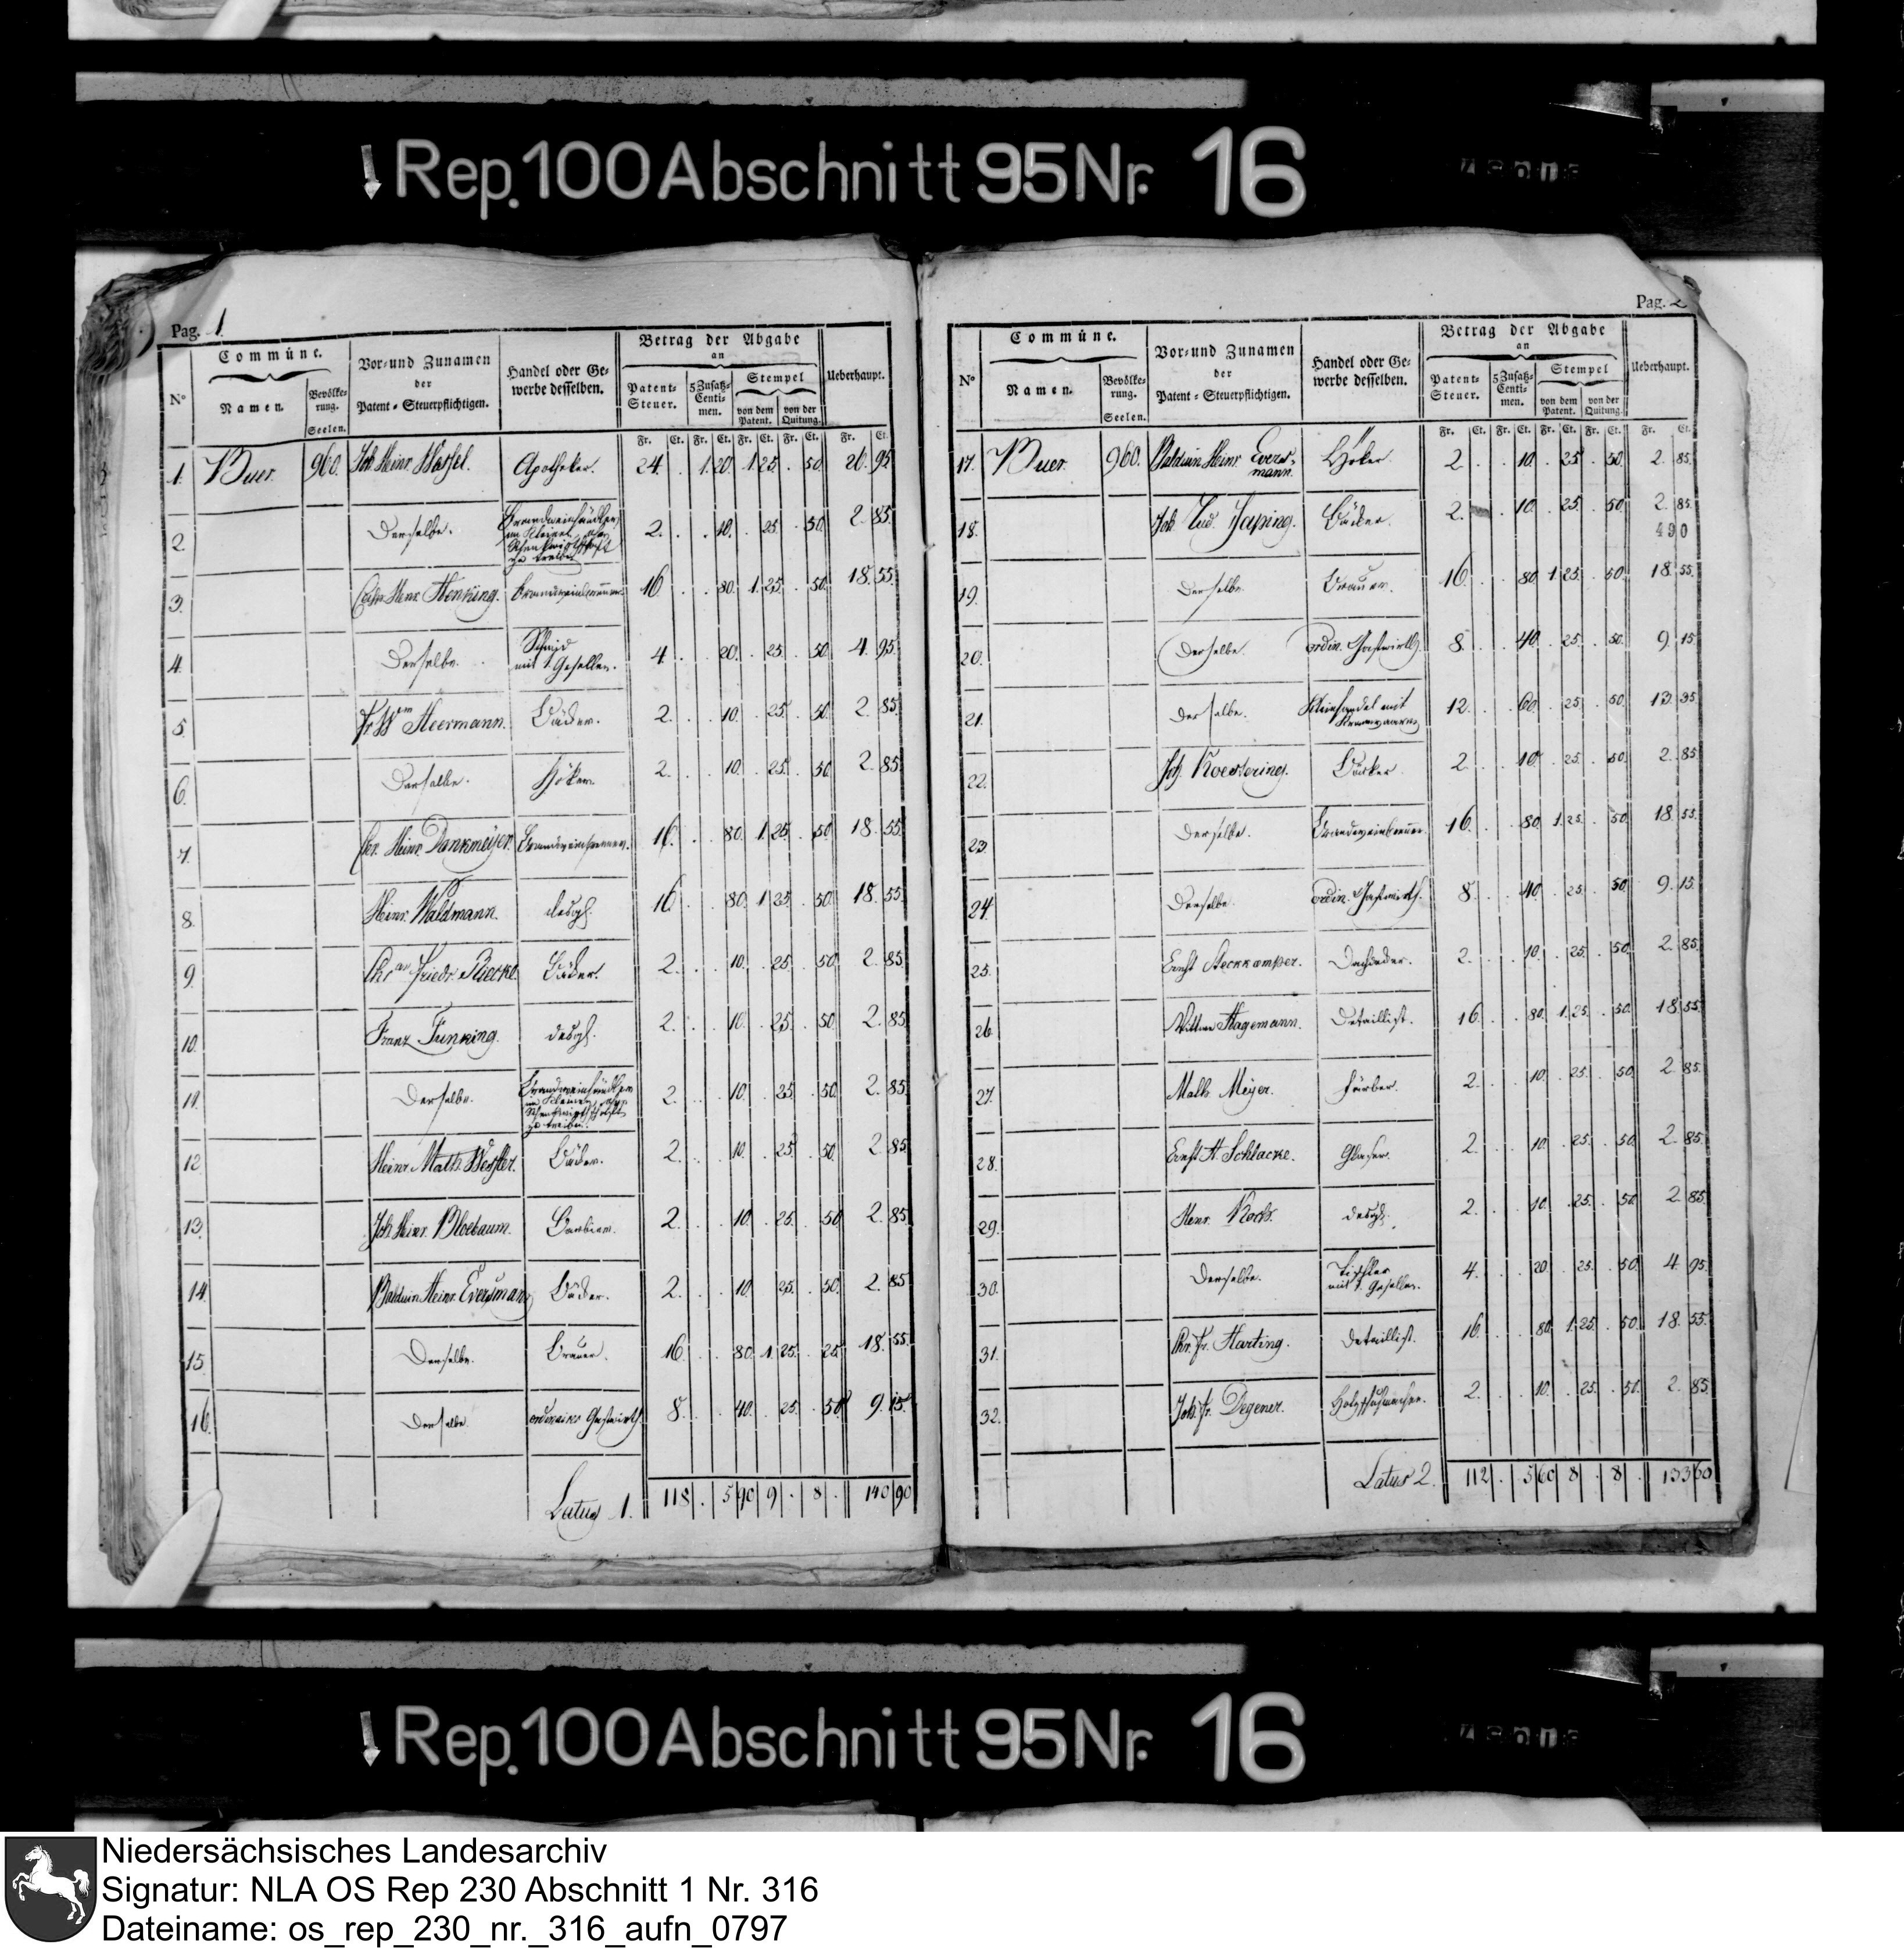 Rep. 100 Abschnitt 95 Nr. 16
Pag. 1.
N° Commüne. Namen. Bevölkerung. Seelen. Vor- und Zunamen der Patent-Steuerpflichtigen. Handel oder Gewerbe desselben. Betrag der Abgabe an Patent-Steuer. 5 Zusatz-Centimen. Stempel von dem Patent. von der Quitung. Ueberhaupt.
Fr. Ct. Fr. Ct. Fr. Ct. Fr. Ct. Fr. Ct.
1. Buer. 960. Joh. Heinr. Wessel. Apotheker. 24 . 1. 20. 1. 25. . 50. 26. 95
2. Derselbe. Brandweinhändler im Kleinen, ohne Schenkwirthschaft zu treiben 2. . . 10. . 25. . 50. 2. 85.
3. Henr. Henking. Brandweinbrenner. 16 . . 80. 1. 25. . 50. 18. 55.
4. Derselbe. Schmid mit 1. Gesellen. 4. . . 20. . 25. . 50. 4. 95.
5. Fr. Wm Heermann. Bäcker. 2. . . 10. . 25. . 50. 2. 85.
6. Derselbe. Höker. 2. . . 10. . 25. . 50. 2. 85.
7. Chr. Heinr. Dankmeijer. Brandweinbrenner. 16. . . 80. 1. 25. . 50. 18. 55.
8. Heinr. Waldmann. desgl. 16. . . 80. 1. 25. . 50. 18. 55.
9. Friedr. Bäcker. 2. . . 10. . 25. . 50. 2. 85.
10. Franz Funking. desgl. 2. . . 10. . 25. . 50. 2. 85.
11. Derselbe. Brandweinhändler im Kleinen, ohne Schenkwirthschaft zu treiben. 2. . . 10. . 25. . 50. 2. 85.
12. Heinr. Math. Wessler. Bäcker. 2. . . 10. . 25. . 50. 2. 85.
13. Joh. Heinr. Bloebaum. Barbier. 2. . . 10. . 25. . 50 2. 85.
14. Balduin Heinr. Eversmann Bäcker. 2. . . 10. . 25. . 50. 2. 85
15. Derselbe. Brauer. 16. . . 80. 1. 25. . 25. 18. 55.
16. Derselbe. ordinairer Gastwirth. 8. . . 40. . 25. . 50 9. 15.
Latus 1. 118 . 5 90 9 . 8 . 140 90
Pag. 2
N° Commüne. Namen. Bevölkerung. Seelen. Vor- und Zunamen der Patent-Steuerpflichtigen. Handel oder Gewerbe desselben. Betrag der Abgabe an Patent-Steuer. 5 Zusatz-Centimen. Stempel von dem Patent. von der Quitung. Ueberhaupt.
Fr. Ct. Fr. Ct. Fr. Ct. Fr. Ct. Fr. Ct.
17. Buer. 960. Balduin Heinr. Eversmann. Höker. 2 . . 10. . 25 . 50. 2. 85.
18. Joh. Lud. Japing. Bäcker. 2. . 10. . 25. . 50. 2. 85
4 90
19. Derselbe. Brauer. 16. . . 80 1. 25. . 50. 18. 55.
20. Derselbe. ordin. Gastwirth. 8. . . 40. . 25. . 50. 9. 15
21. Derselbe. Kleinhandel mit Kramwaaren 12. . . 60. . 25. . 50. 13. 35
22. Joh. Koestering. Bäcker. 2. . . 10. . 25. . 50. 2. 85
23. Derselbe. Brandweinbrenner. 16. . . 80. 1. 25. . 50. 18. 55.
24. Derselbe. ordin. Gastwirth. 8. . . 40. . 25. . 50 9. 15.
25. Ernst Steckkamper. Dachdecker. 2. . . 10. . 25. . 50. 2. 85.
26. Wittwe Hagemann. Detaillist. 16. . . 80. 1. 25. . 50. 18. 55
27. Math. Meijer. Färber. 2. . . 10. . 25. . 50. 2. 85.
28. Ernst H. Schlacke. Glaser. 2. . . 10. . 25. . 50. 2. 85.
29. Henr. desgl. 2. . . 10. . 25. . 50. 2. 85.
30. Derselbe. Tischler mit 1. Gesellen. 4. . . 20. . 25. . 50. 4. 95.
31. Chr. Fr. Harting. Detaillist. 16. . . 80. 1. 25. . 50. 18. 55.
32. Joh. Fr. Degener. Holzschuhmacher. 2. . . 10. . 25. . 50. 2. 85.
Latus 2. 112 . 5 60 8 . 8 . 133 60
Rep. 100 Abschnitt 95 Nr. 16
Niedersächsisches Landesarchiv
Signatur: NLA OS Rep 230 Abschnitt 1 Nr. 316
Dateiname: os_rep_230_nr._316_aufn_0797